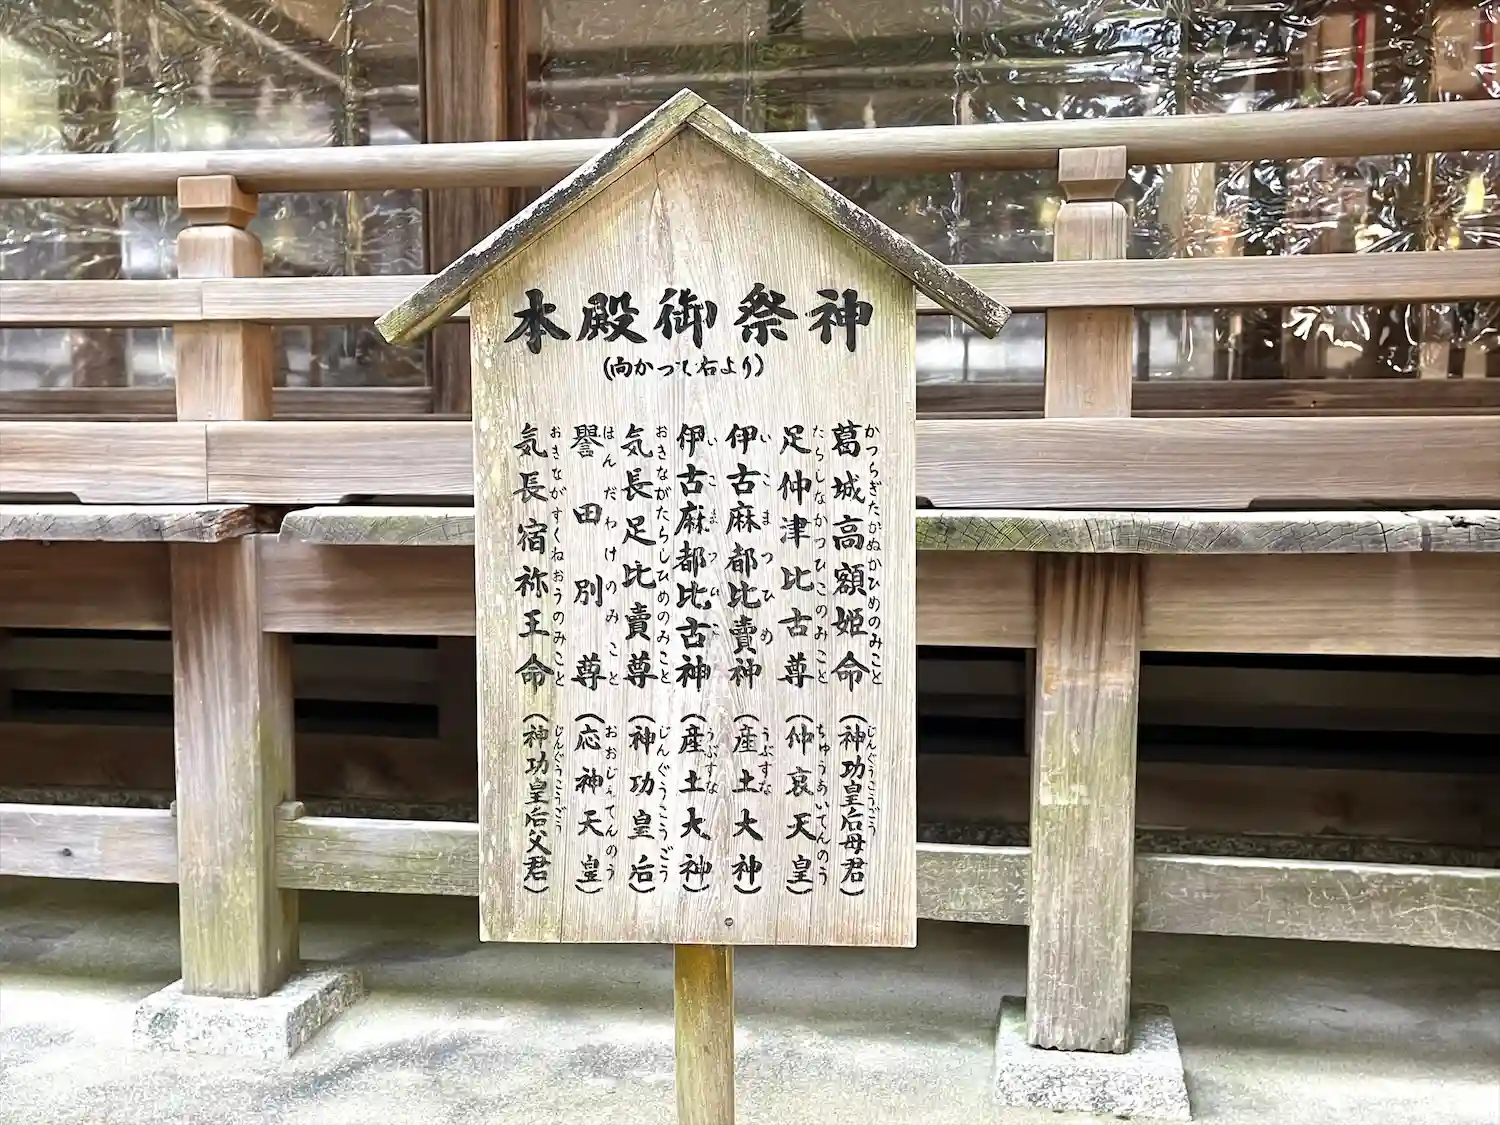 本殿御祭神
(向かって右より)
葛城高額姫命(神功皇后母君)
かつらぎたかぬかひめのみこと じんぐうこうごう
足仲津比古尊(仲哀天皇)
たらしなかつひこのみこと ちゅうあいてんのう
伊古麻都比賣神(産土大神)
いこまつひめ うぶすな
伊古麻都比古神(産土大神)
いこまつひこ うぶすな
気長足比賣尊(神功皇后)
おきながたらしひめのみこと じんぐうこうごう
譽田別尊(応神天皇)
はんだわけのみこと おおじんてんのう
気長宿祢王命(神功皇后父君)
おきながすくねおうのみこと じんぐうこうごう